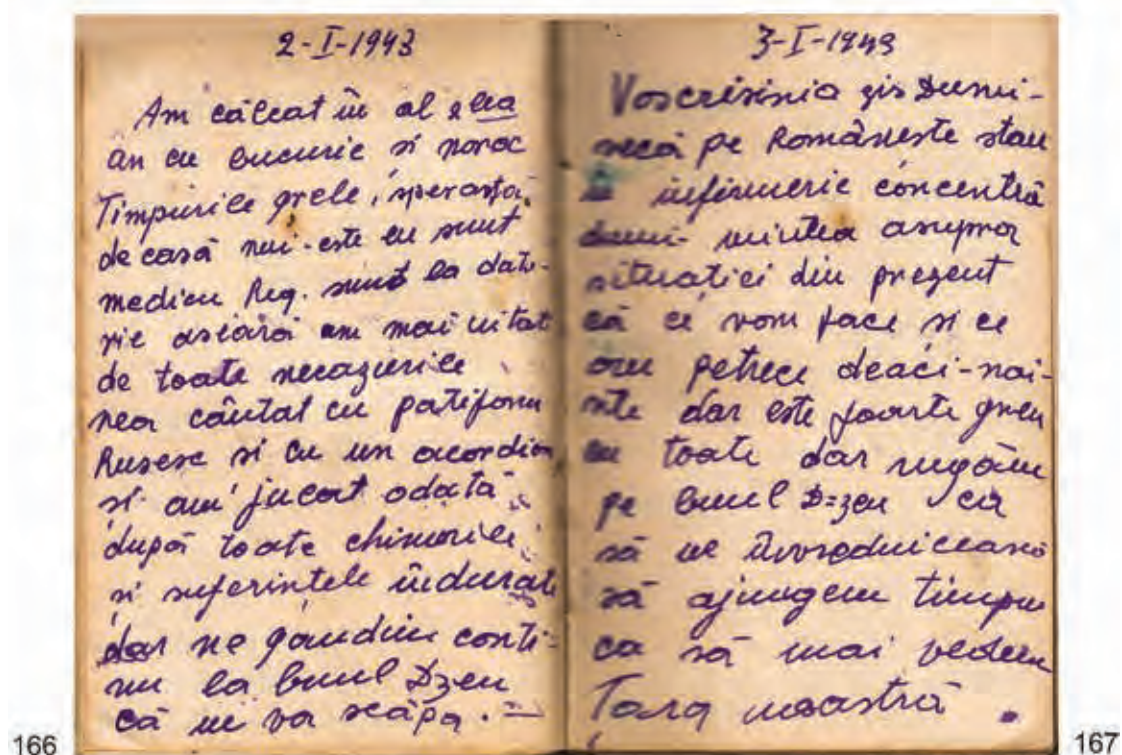 2-I-1943
Am călcat în al 2 lea
an cu bucurie si noroc
Timpurile grele, speranța,
de casă nui-este eu sunt
medicu Reg. sunt la bate-
rie asiară am mai uitat
de toate necazurile
nea cântat cu patifonu
Rusesc si cu un acordion
si am jucat odată
după toate chinurile
si suferințele îndurate
dar ne gandim conti-
nu la bunul Dzeu
că ne va scăpa. —
3-I-1943
Voscrisinia zis Dumi-
necă pe Românește stau
infirmerie concentrâ
dumi- mintea asupra
situatiei din prezent
că ce vom face si ce
om petrece deaci-nai-
nte dar este foarte greu
cu toate dar rugăm
pe bunul D-zeu ca
să ne învrednicească
să ajungem timpu
ca să mai vedem
Tara noastră.
166
167